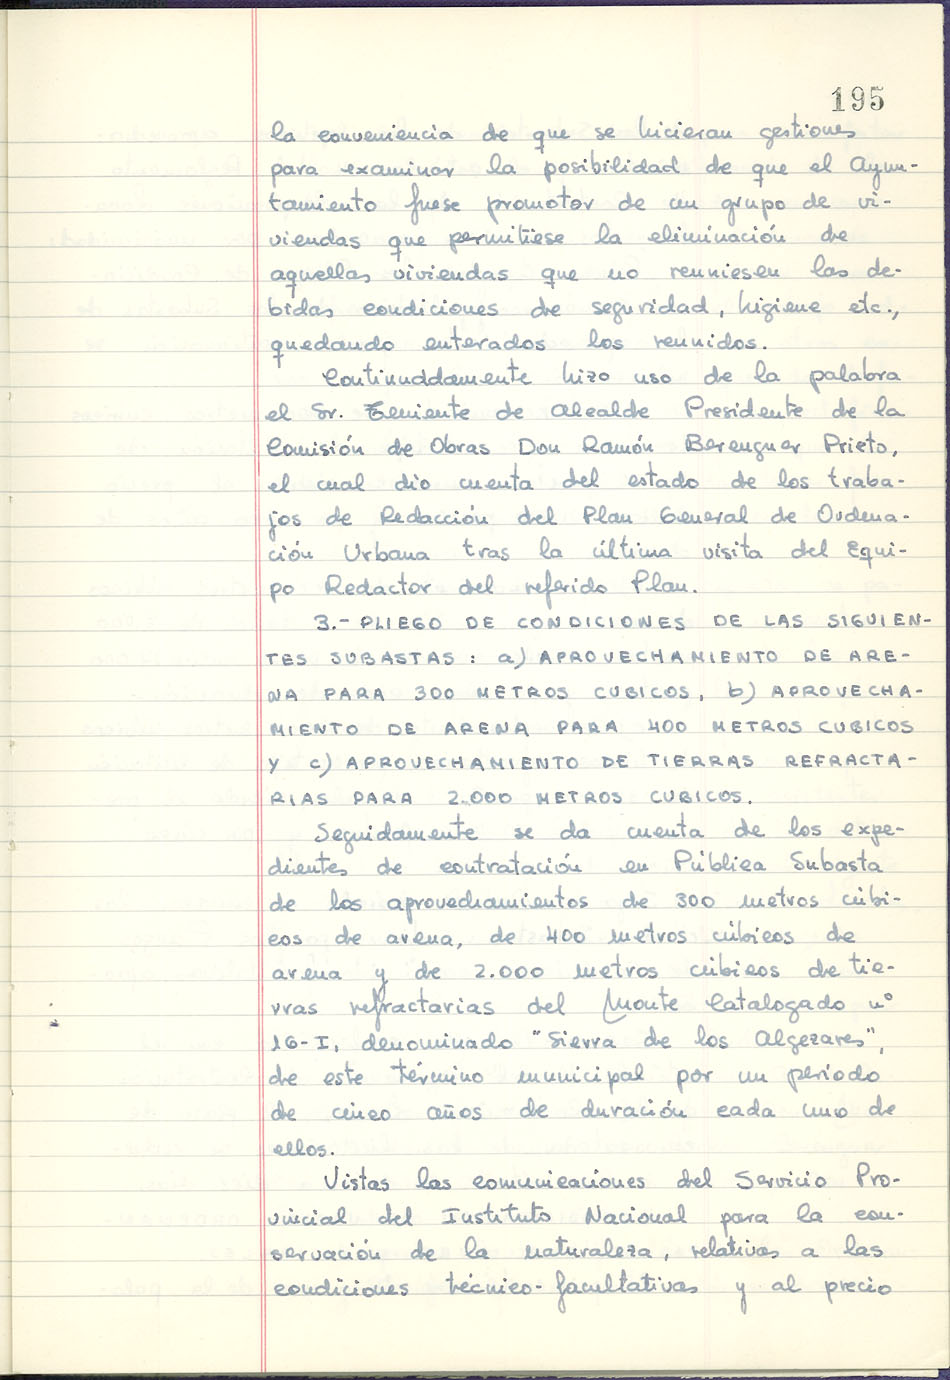 195
la conveniencia de que se hicieran gestiones
para examinar la posibilidad de que el Ayun-
tamiento fuese promotor de un grupo de vi-
viendas que permitiese la eliminación de
aquellas viviendas que no reuniesen las de-
bidas condiciones de seguridad, higiene etc.,
quedando enterados los reunidos.
Continuddamente hizo uso de la palabra
el Sr. Teniente de Alcalde Presidente de la
Comisión de Obras Don Ramón Berenguer Prieto,
el cual dio cuenta del estado de los traba-
jos de Redacción del Plan General de Ordena-
ción Urbana tras la última visita del Equi-
po Redactor del referido Plan.
3.- PLIEGO DE CONDICIONES DE LAS SIGUIEN-
TES SUBASTAS: a) APROVECHAMIENTO DE ARE-
NA PARA 300 METROS CUBICOS, b) APROVECHA-
MIENTO DE ARENA PARA 400 METROS CUBICOS
Y c) APROVECHAMIENTO DE TIERRAS REFRACTA-
RIAS PARA 2.000 METROS CUBICOS.
Seguidamente se da cuenta de los expe-
dientes de contratación en Pública Subasta
de los aprovechamientos de 300 metros cúbi-
cos de arena, de 400 metros cúbicos de
arena y de 2.000 metros cúbicos de tie-
rras refractarias del Monte Catalogado nº
16-I, denominado "Sierra de los Algezares",
de este término municipal por un período
de cinco años de duración cada uno de
ellos.
Vistas las comunicaciones del Servicio Pro-
vincial del Instituto Nacional para la con-
servación de la naturaleza, relativas a las
condiciones técnico-facultativas y al precio